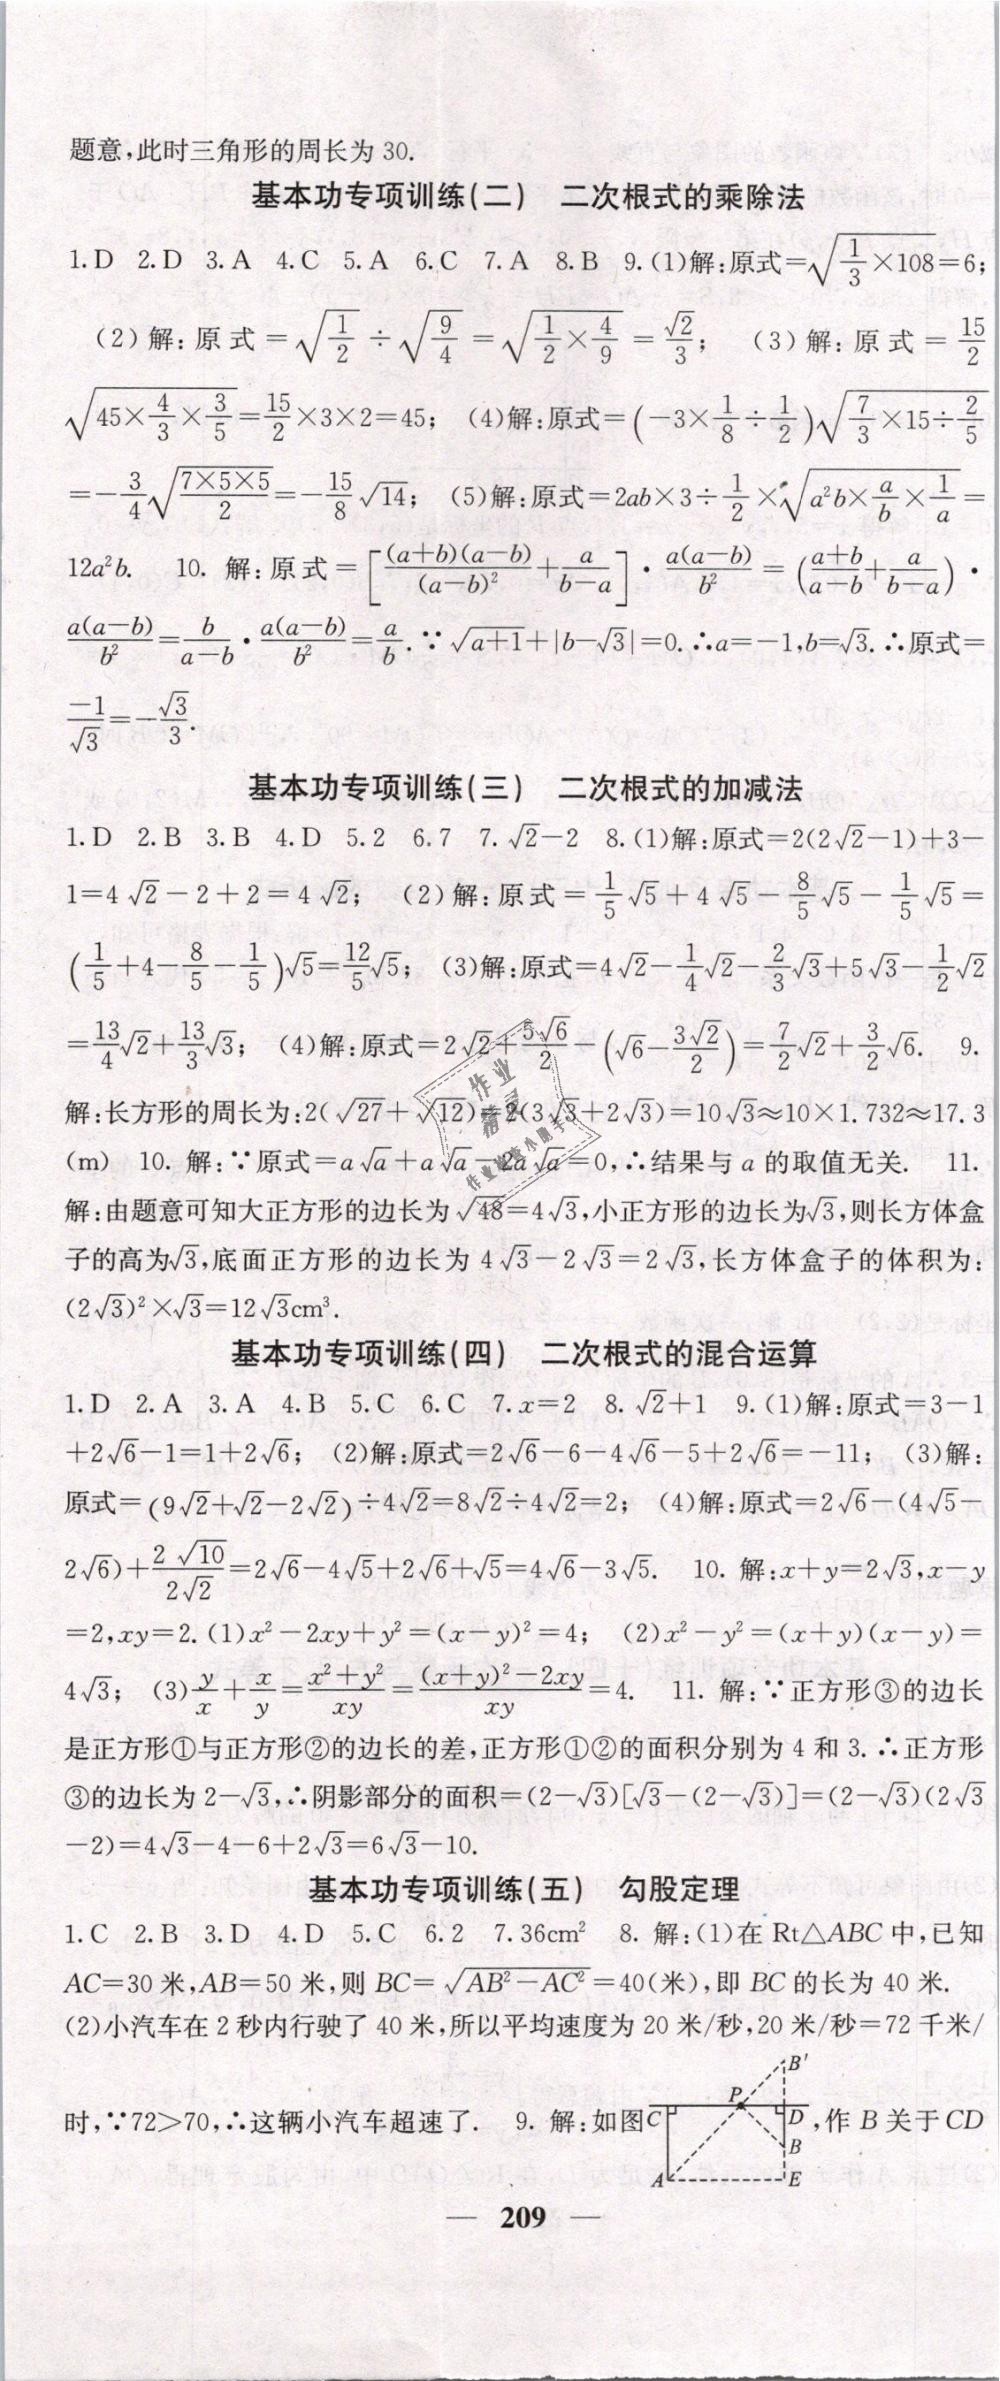 题意,此时三角形的周长为 30.
基本功专项训练(二) 二次根式的乘除法
1.D 2.D 3.A 4.C 5.A 6.C 7.A 8.B 9.(1)解:原式=√(1/3×108)=6;
(2)解:原式=√(1/2)÷√(9/4)=√(1/2×4/9)=√2/3; (3)解:原式=15/2
√(45×4/3×3/5)=15/2×3×2=45; (4)解:原式=(-3×1/8÷1/2)√(7/3×15÷2/5)
=-3/4√(7×5×5/2)=-15/8√14; (5)解:原式=2ab×3÷1/2×√(a²b×a/b×1/a)=
12a²b. 10. 解:原式=[(a+b)(a-b)/(a-b)²+a/(b-a)]·a(a-b)/b²=((a+b)/(a-b)+a/(b-a))·
a(a-b)/b²=b/(a-b)·a(a-b)/b²=a/b.∵√(a+1)+|b-√3|=0.∴a=-1,b=√3.∴原式=
-1/√3=-√3/3.
基本功专项训练(三) 二次根式的加减法
1.D 2.B 3.B 4.D 5.2 6.7 7.√2-2 8.(1)解:原式=2(2√2-1)+3-
1=4√2-2+2=4√2; (2)解:原式=1/5√5+4√5-8/5√5-1/5√5=
(1/5+4-8/5-1/5)√5=12/5√5; (3)解:原式=4√2-1/4√2-2/3√3+5√3-1/2√2
=13/4√2+13/3√3; (4)解:原式=2√2+5√6/2-(√6-3√2/2)=7/2√2+3/2√6. 9.
解:长方形的周长为:2(√27+√12)=2(3√3+2√3)=10√3≈10×1.732≈17.3
(m) 10. 解:∵原式=a√a+a√a-2a√a=0,∴结果与 a 的取值无关. 11.
解:由题意可知大正方形的边长为√48=4√3,小正方形的边长为√3,则长方体盒
子的高为√3,底面正方形的边长为 4√3-2√3=2√3,长方体盒子的体积为:
(2√3)²×√3=12√3cm³.
基本功专项训练(四) 二次根式的混合运算
1.D 2.A 3.A 4.B 5.C 6.C 7.x=2 8.√2+1 9.(1)解:原式=3-1
+2√6-1=1+2√6; (2)解:原式=2√6-6-4√6-5+2√6=-11; (3)解:
原式=(9√2+√2-2√2)÷4√2=8√2÷4√2=2; (4)解:原式=2√6-(4√5-
2√6)+2√10/2√2=2√6-4√5+2√6+√5=4√6-3√5. 10. 解:x+y=2√3,x-y
=2,xy=2.(1)x²-2xy+y²=(x-y)²=4; (2)x²-y²=(x+y)(x-y)=
4√3; (3)y/x+x/y=(x²+y²)/xy=((x+y)²-2xy)/xy=4. 11. 解:∵正方形③的边长
是正方形①与正方形②的边长的差,正方形①②的面积分别为 4 和 3.∴正方形
③的边长为 2-√3,∴阴影部分的面积=(2-√3)[√3-(2-√3)]=(2-√3)(2√3
-2)=4√3-4-6+2√3=6√3-10.
基本功专项训练(五) 勾股定理
1.C 2.B 3.D 4.D 5.C 6.2 7.36cm² 8. 解:(1)在 Rt△ABC 中,已知
AC=30 米,AB=50 米,则 BC=√(AB²-AC²)=40(米),即 BC 的长为 40 米.
(2)小汽车在 2 秒内行驶了 40 米,所以平均速度为 20 米/秒,20 米/秒=72 千米/
时,∵72>70,∴这辆小汽车超速了. 9. 解:如图 ,作 B 关于 CD
B′
P
C
D
B
A
E
— 209 —